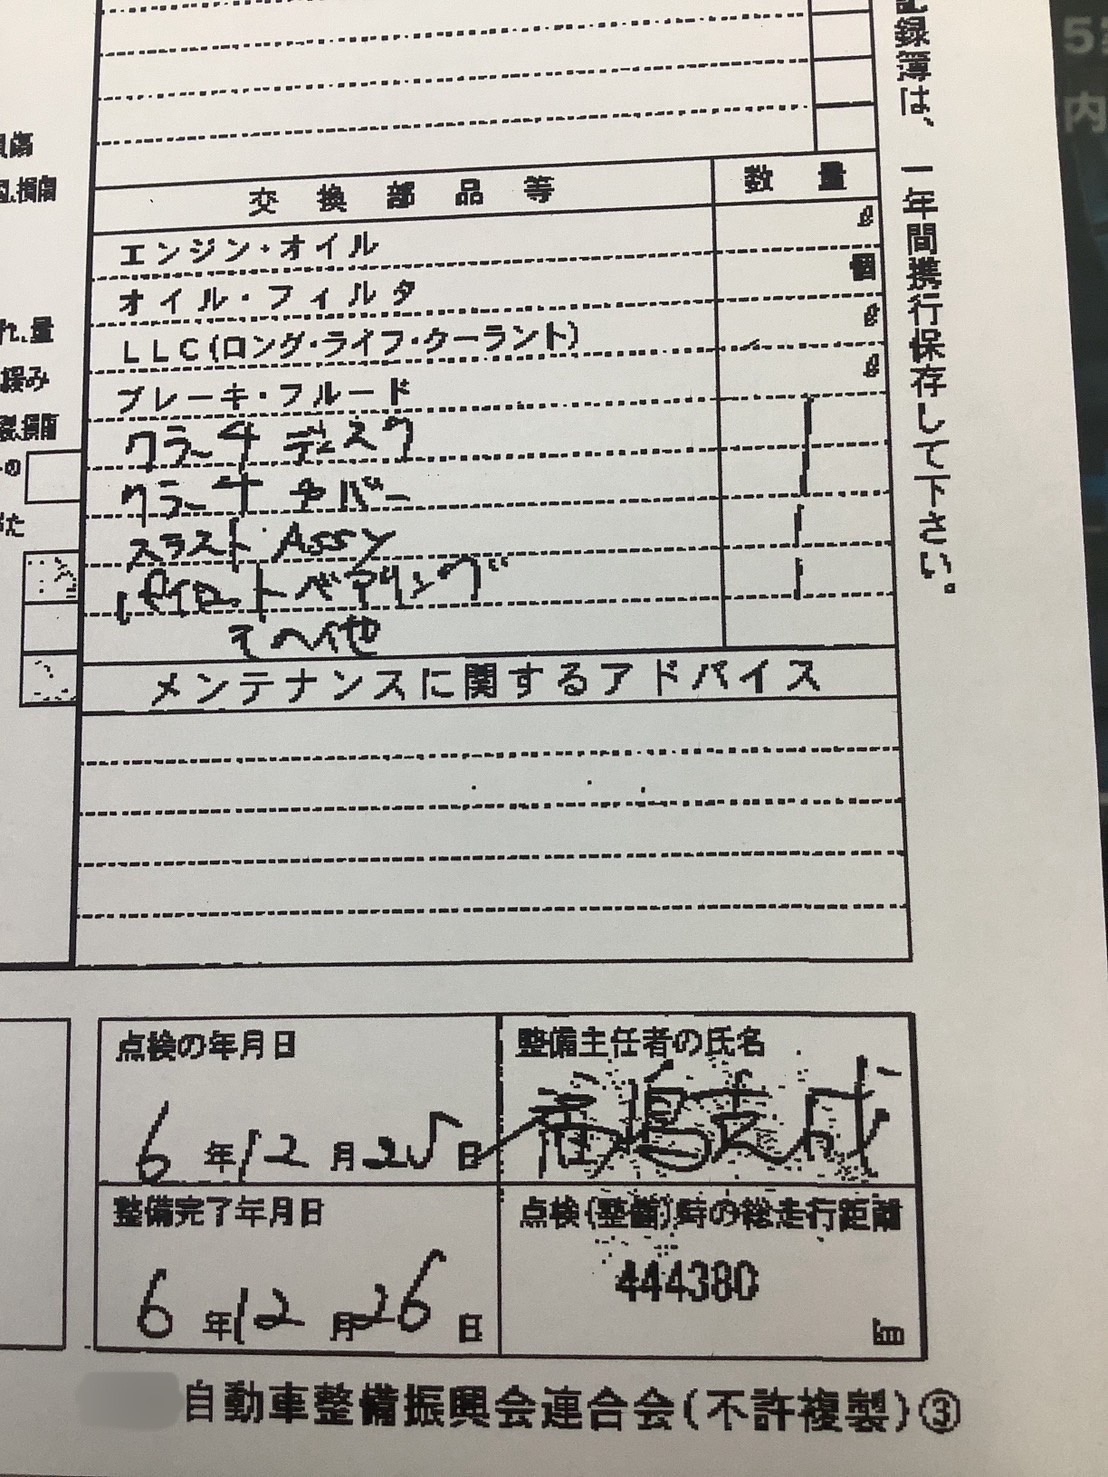 録簿は、一年間携行保存して下さい。
損傷
量
緩み
損傷
の
交換部品等 数量
エンジン・オイル ℓ
オイル・フィルタ 個
LLC(ロング・ライフ・クーラント) ℓ
ブレーキ・フルード ℓ
クラッチ ディスク 1
クラッチ カバー 1
スラスト Assy 1
パイロットベアリング 1
その他
メンテナンスに関するアドバイス
点検の年月日
6年12月25日
整備主任者の氏名
整備完了年月日
6年12月26日
点検(整備)時の総走行距離
444380
自動車整備振興会連合会(不許複製)③
5
内